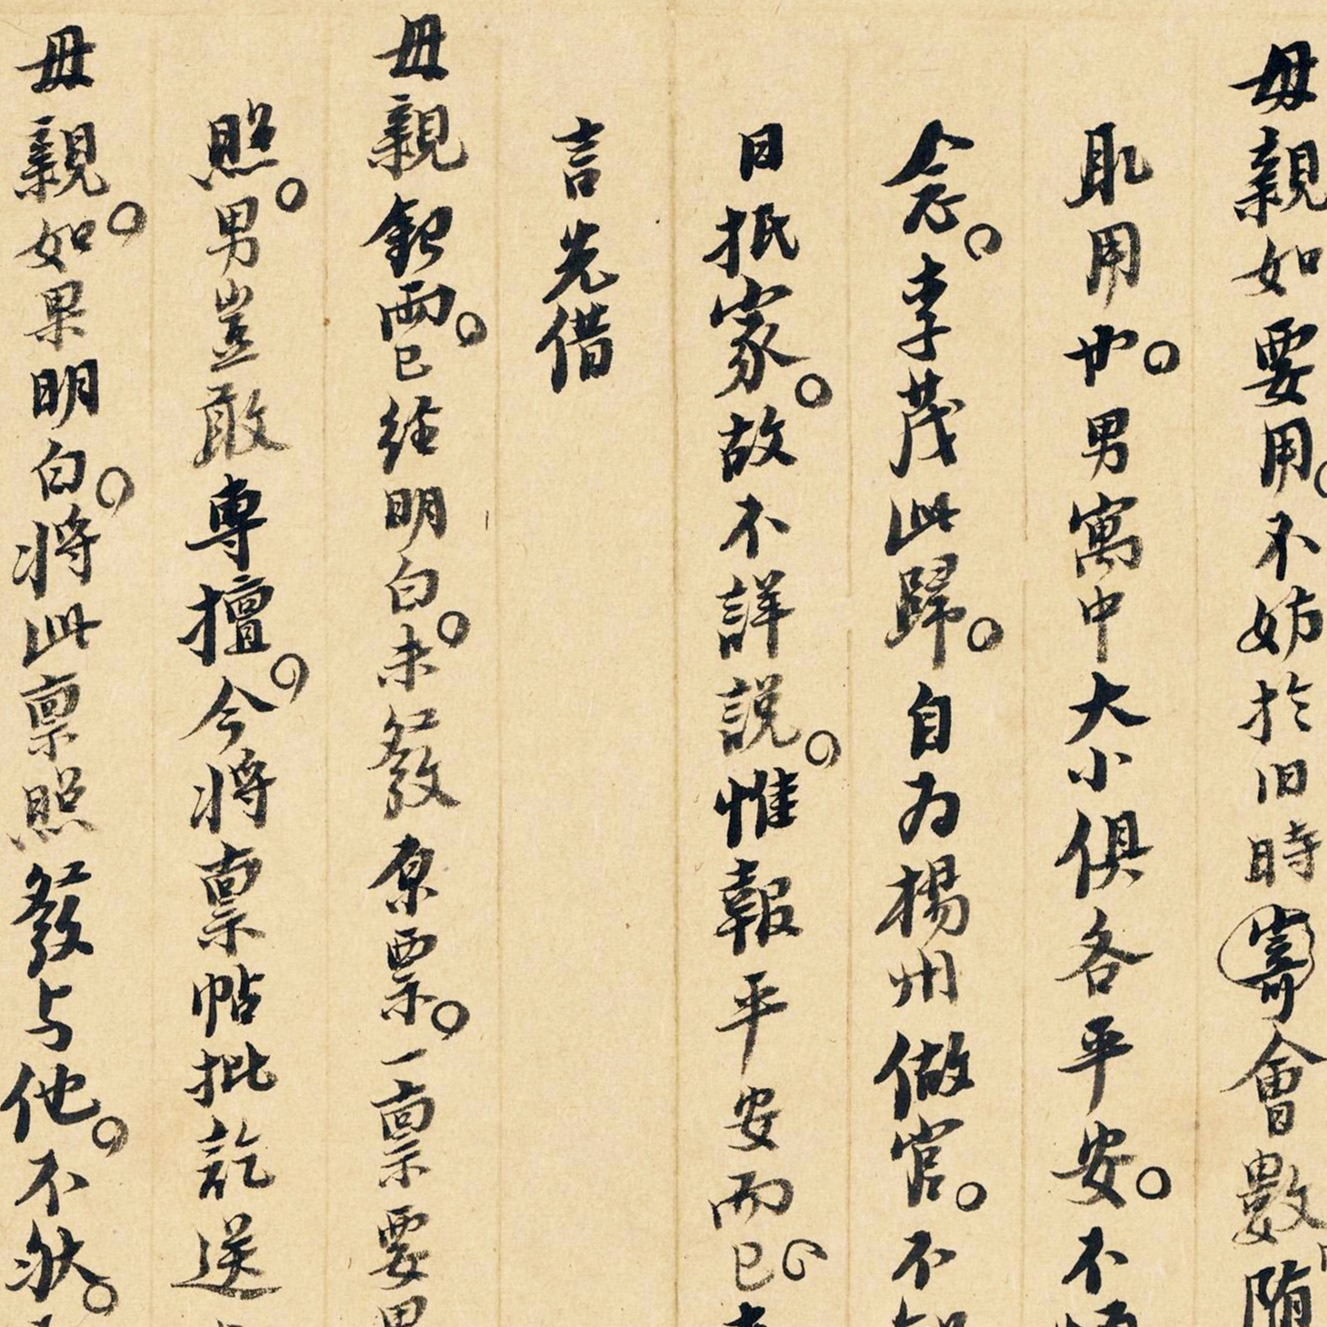 母親如要用。不妨於旧時寄會數随
取用也。男寓中大小俱各平安。不
念。李茂此歸。自为楊州做官。不
日抵家。故不詳説。惟報平安而已
言先借
母親銀両。已经明白。未發原票。一禀要男
照。男豈敢專擅。今将禀帖批訖送
母親。如果明白。将此禀照發与他。不然。